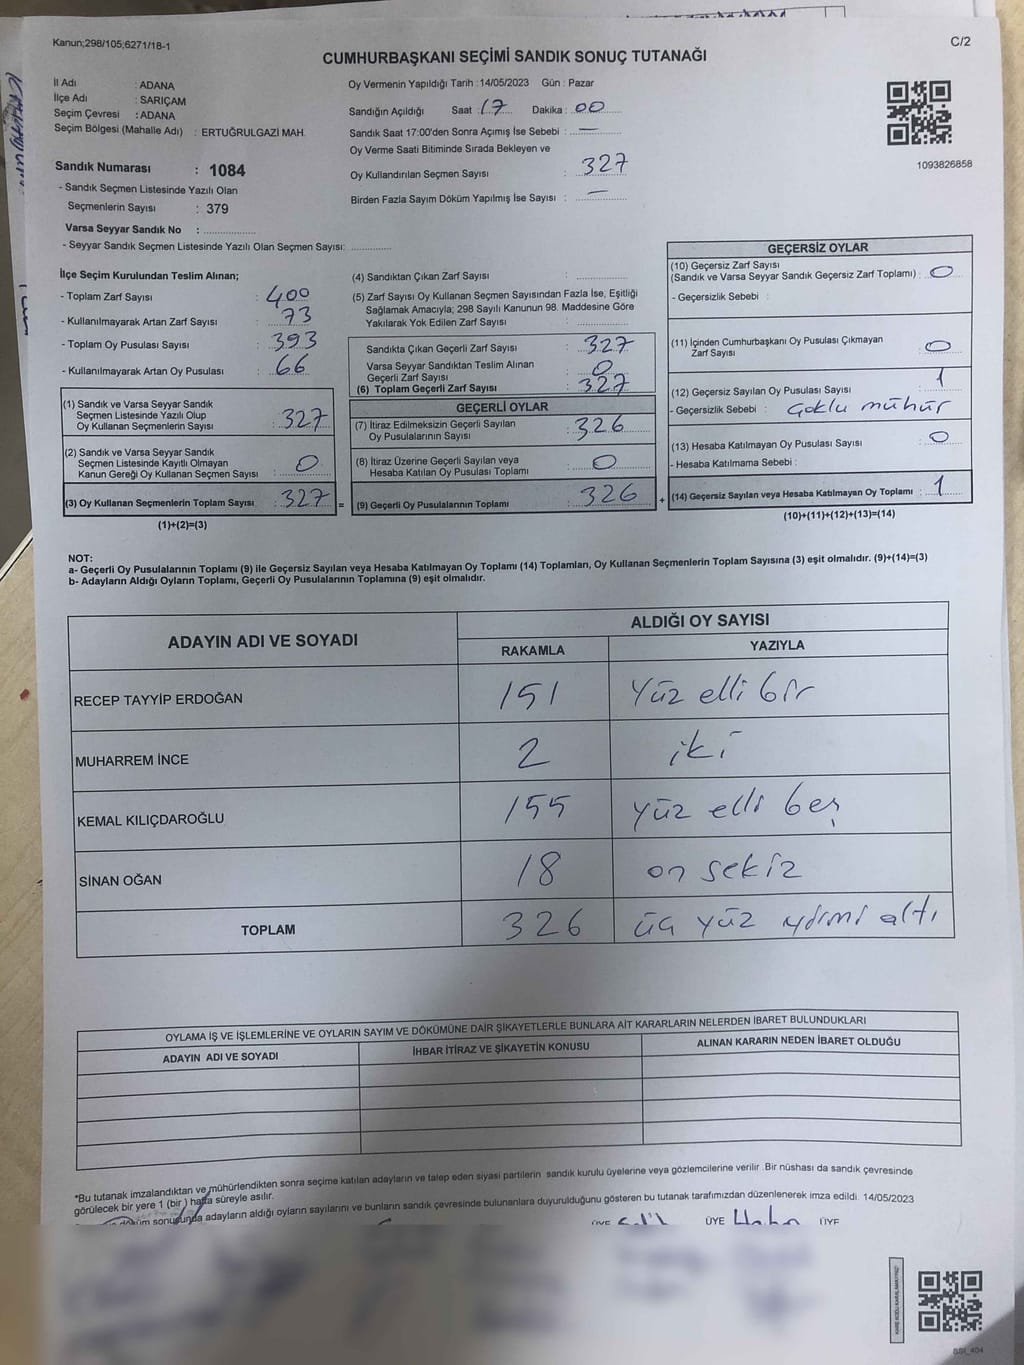 Kanun;298/105;6271/18-1
C/2
CUMHURBAŞKANI SEÇİMİ SANDIK SONUÇ TUTANAĞI
İl Adı : ADANA
İlçe Adı : SARIÇAM
Seçim Çevresi : ADANA
Seçim Bölgesi (Mahalle Adı) : ERTUĞRULGAZİ MAH.
Sandık Numarası : 1084
- Sandık Seçmen Listesinde Yazılı Olan
Seçmenlerin Sayısı : 379
Varsa Seyyar Sandık No :
- Seyyar Sandık Seçmen Listesinde Yazılı Olan Seçmen Sayısı:
Oy Vermenin Yapıldığı Tarih : 14/05/2023 Gün : Pazar
Sandığın Açıldığı Saat : 17 Dakika : 00
Sandık Saat 17:00'den Sonra Açımış İse Sebebi : —
Oy Verme Saati Bitiminde Sırada Bekleyen ve
Oy Kullandırılan Seçmen Sayısı : 327
Birden Fazla Sayım Döküm Yapılmış İse Sayısı : —
1093826858
İlçe Seçim Kurulundan Teslim Alınan;
- Toplam Zarf Sayısı : 400
- Kullanılmayarak Artan Zarf Sayısı : 73
- Toplam Oy Pusulası Sayısı : 393
- Kullanılmayarak Artan Oy Pusulası : 66
(1) Sandık ve Varsa Seyyar Sandık
Seçmen Listesinde Yazılı Olup
Oy Kullanan Seçmenlerin Sayısı : 327
(2) Sandık ve Varsa Seyyar Sandık
Seçmen Listesinde Kayıtlı Olmayan
Kanun Gereği Oy Kullanan Seçmen Sayısı : 0
(3) Oy Kullanan Seçmenlerin Toplam Sayısı : 327 =
(1)+(2)=(3)
(4) Sandıktan Çıkan Zarf Sayısı :
(5) Zarf Sayısı Oy Kullanan Seçmen Sayısından Fazla İse, Eşitliği
Sağlamak Amacıyla; 298 Sayılı Kanunun 98. Maddesine Göre
Yakılarak Yok Edilen Zarf Sayısı :
Sandıkta Çıkan Geçerli Zarf Sayısı : 327
Varsa Seyyar Sandıktan Teslim Alınan
Geçerli Zarf Sayısı : 0
(6) Toplam Geçerli Zarf Sayısı : 327
GEÇERLİ OYLAR
(7) İtiraz Edilmeksizin Geçerli Sayılan
Oy Pusulalarının Sayısı : 326
(8) İtiraz Üzerine Geçerli Sayılan veya
Hesaba Katılan Oy Pusulası Toplamı : 0
(9) Geçerli Oy Pusulalarının Toplamı : 326 +
GEÇERSİZ OYLAR
(10) Geçersiz Zarf Sayısı
(Sandık ve Varsa Seyyar Sandık Geçersiz Zarf Toplamı) : 0
- Geçersizlik Sebebi :
(11) İçinden Cumhurbaşkanı Oy Pusulası Çıkmayan
Zarf Sayısı : 0
(12) Geçersiz Sayılan Oy Pusulası Sayısı : 1
- Geçersizlik Sebebi : Çoklu mühür
(13) Hesaba Katılmayan Oy Pusulası Sayısı : 0
- Hesaba Katılmama Sebebi :
(14) Geçersiz Sayılan veya Hesaba Katılmayan Oy Toplamı : 1
(10)+(11)+(12)+(13)=(14)
NOT:
a- Geçerli Oy Pusulalarının Toplamı (9) ile Geçersiz Sayılan veya Hesaba Katılmayan Oy Toplamı (14) Toplamları, Oy Kullanan Seçmenlerin Toplam Sayısına (3) eşit olmalıdır. (9)+(14)=(3)
b- Adayların Aldığı Oyların Toplamı, Geçerli Oy Pusulalarının Toplamına (9) eşit olmalıdır.
ADAYIN ADI VE SOYADI ALDIĞI OY SAYISI
RAKAMLA YAZIYLA
RECEP TAYYİP ERDOĞAN 151 Yüz elli bir
MUHARREM İNCE 2 iki
KEMAL KILIÇDAROĞLU 155 yüz elli beş
SİNAN OĞAN 18 on sekiz
TOPLAM 326 üç yüz yirmi altı
OYLAMA İŞ VE İŞLEMLERİNE VE OYLARIN SAYIM VE DÖKÜMÜNE DAİR ŞİKAYETLERLE BUNLARA AİT KARARLARIN NELERDEN İBARET BULUNDUKLARI
ADAYIN ADI VE SOYADI İHBAR İTİRAZ VE ŞİKAYETİN KONUSU ALINAN KARARIN NEDEN İBARET OLDUĞU
*Bu tutanak imzalandıktan ve mühürlendikten sonra seçime katılan adayların ve talep eden siyasi partilerin sandık kurulu üyelerine veya gözlemcilerine verilir. Bir nüshası da sandık çevresinde
görülecek bir yere 1 (bir) hafta süreyle asılır.
döküm sonucunda adayların aldığı oyların sayılarını ve bunların sandık çevresinde bulunanlara duyurulduğunu gösteren bu tutanak tarafımızdan düzenlenerek imza edildi. 14/05/2023
ÜYE ÜYE ÜYE